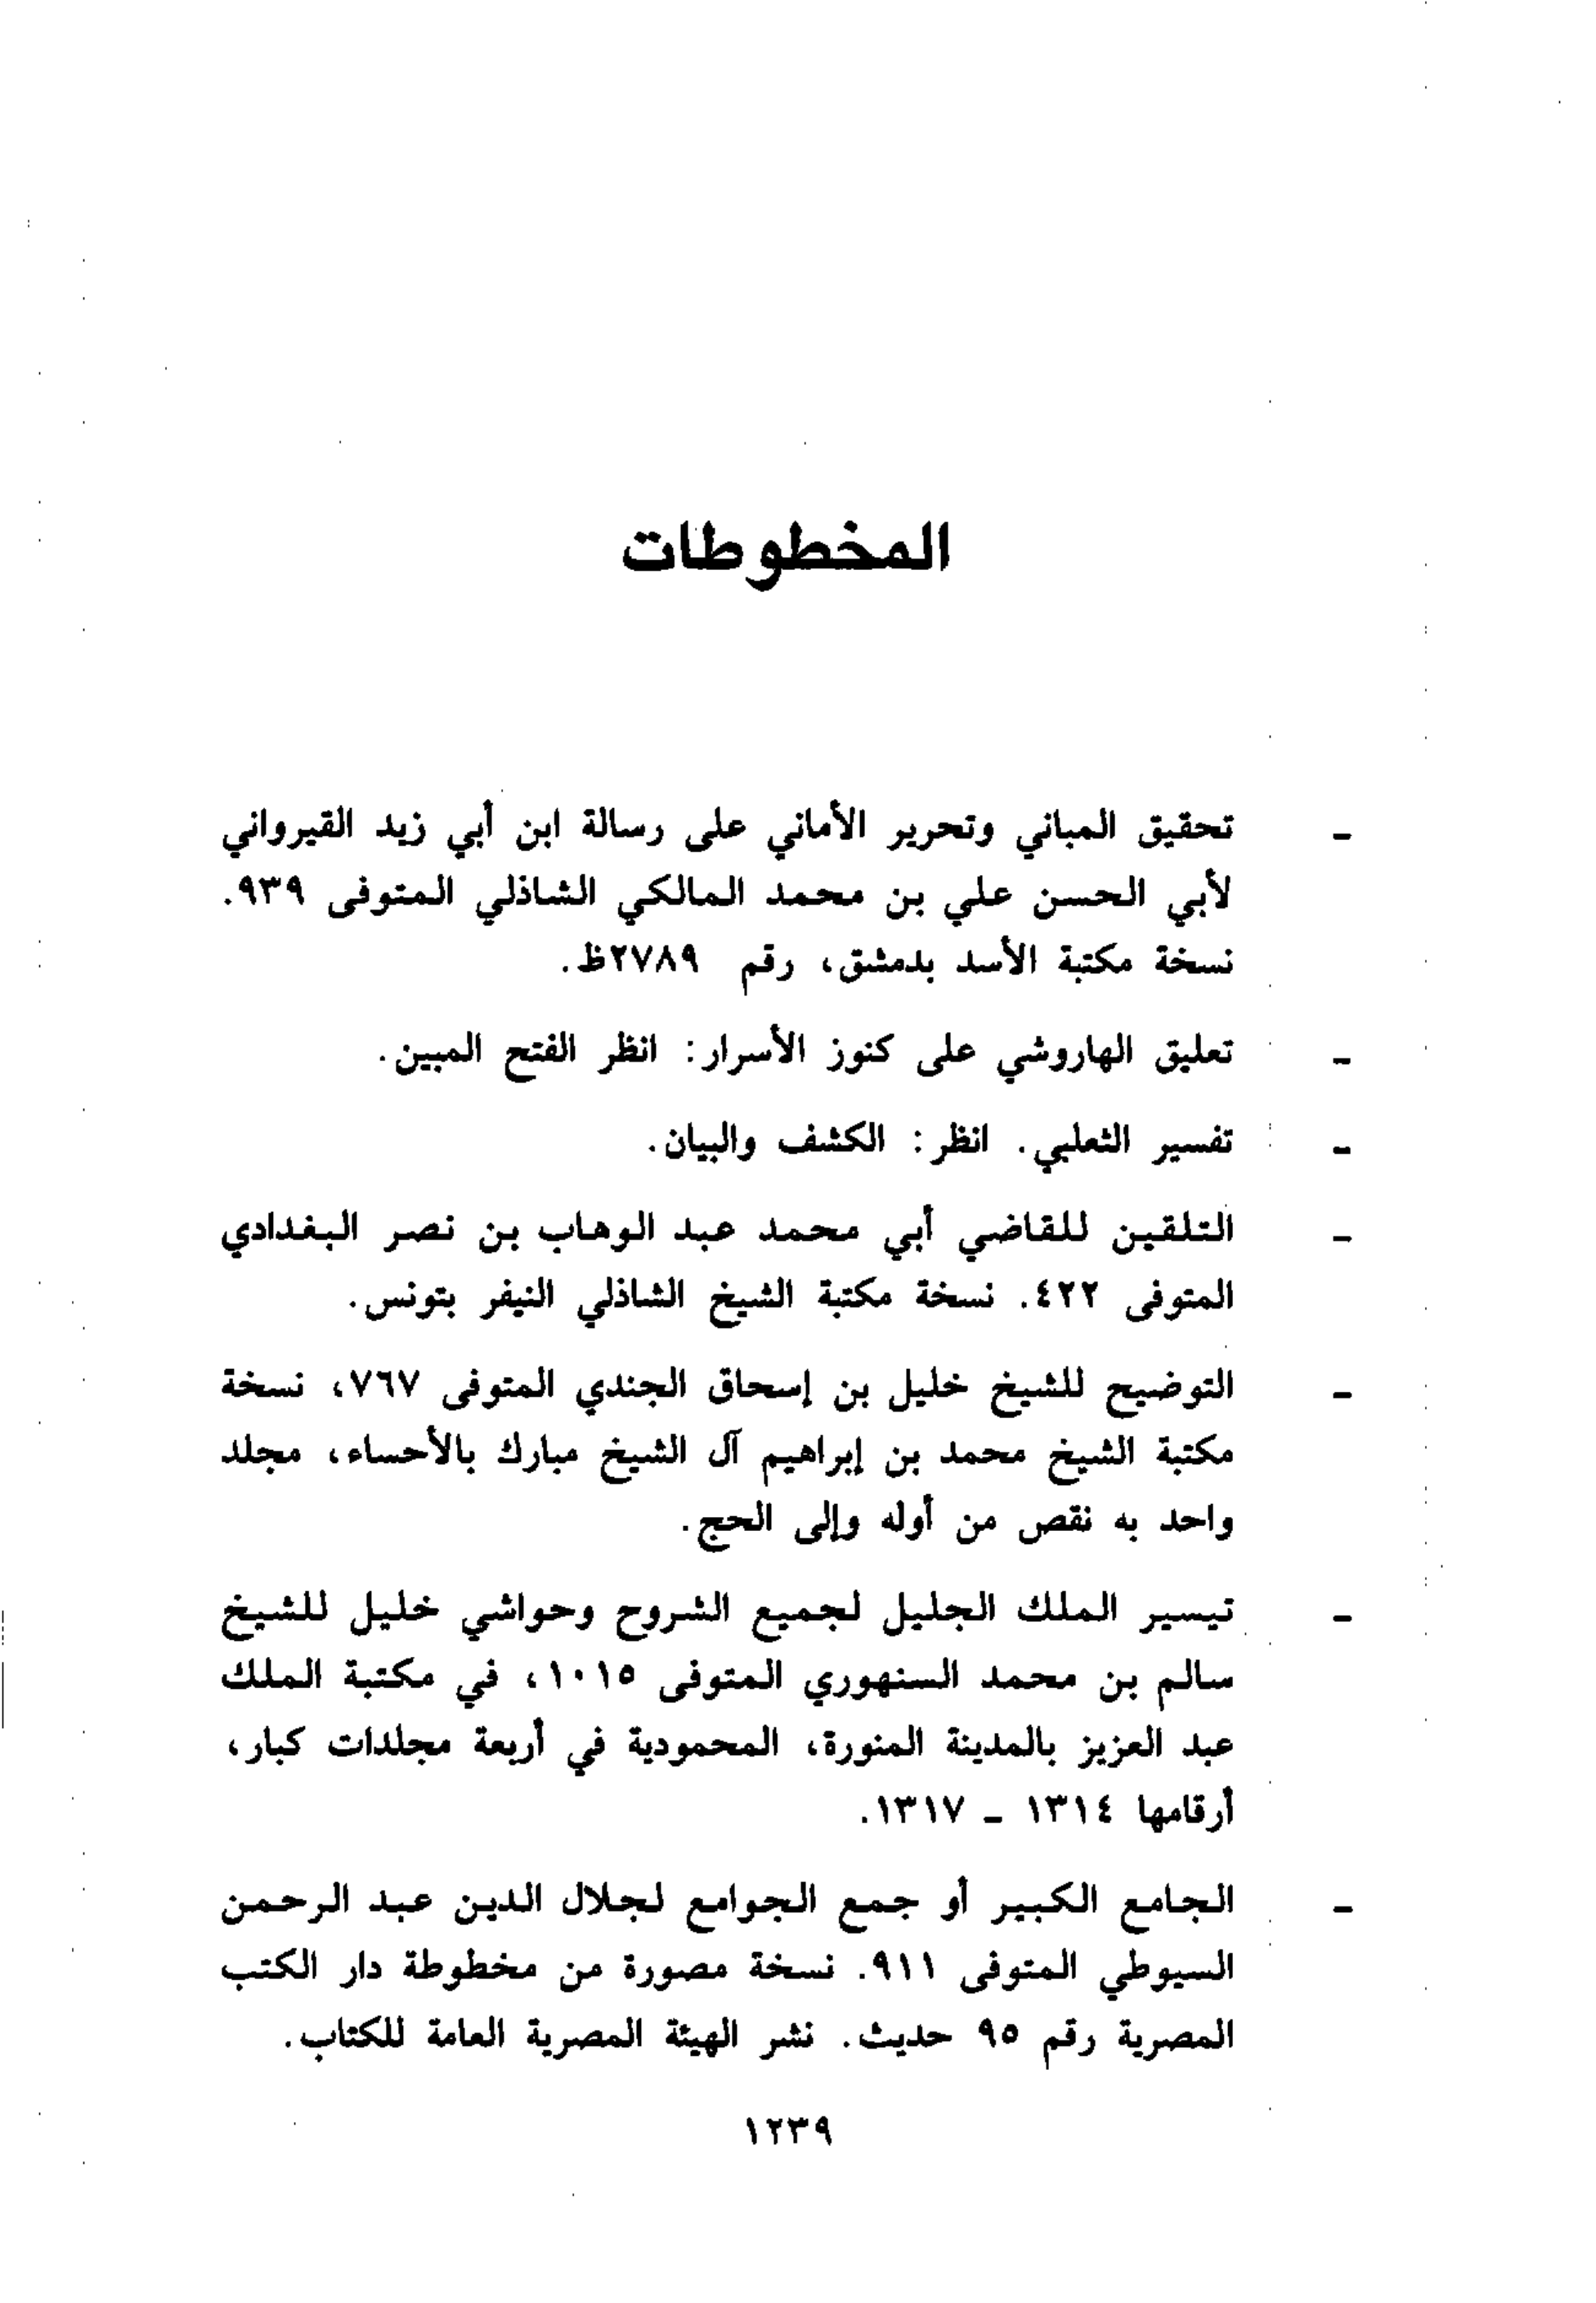 المخطوطات
- تحقيق المباني وتحرير الأماني على رسالة ابن أبي زيد القيرواني
لأبي الحسن علي بن محمد المالكي الشاذلي المتوفى ٩٣٩.
نسخة مكتبة الأسد بدمشق، رقم ٢٧٨٩ظ.
- تعليق الهاروشي على كنوز الأسرار: انظر الفتح المبين.
- تفسير الثعلبي. انظر: الكشف والبيان.
- التلقين للقاضي أبي محمد عبد الوهاب بن نصر البغدادي
المتوفى ٤٢٢. نسخة مكتبة الشيخ الشاذلي النيفر بتونس.
- التوضيح للشيخ خليل بن إسحاق الجندي المتوفى ٧٦٧، نسخة
مكتبة الشيخ محمد بن إبراهيم آل الشيخ مبارك بالأحساء، مجلد
واحد به نقص من أوله وإلى الحج.
- تيسير الملك الجليل لجميع الشروح وحواشي خليل للشيخ
سالم بن محمد السنهوري المتوفى ١٠١٥، في مكتبة الملك
عبد العزيز بالمدينة المنورة، المحمودية في أربعة مجلدات كبار،
أرقامها ١٣١٤ - ١٣١٧.
- الجامع الكبير أو جمع الجوامع لجلال الدين عبد الرحمن
السيوطي المتوفى ٩١١. نسخة مصورة من مخطوطة دار الكتب
المصرية رقم ٩٥ حديث. نشر الهيئة المصرية العامة للكتاب.
١٢٣٩